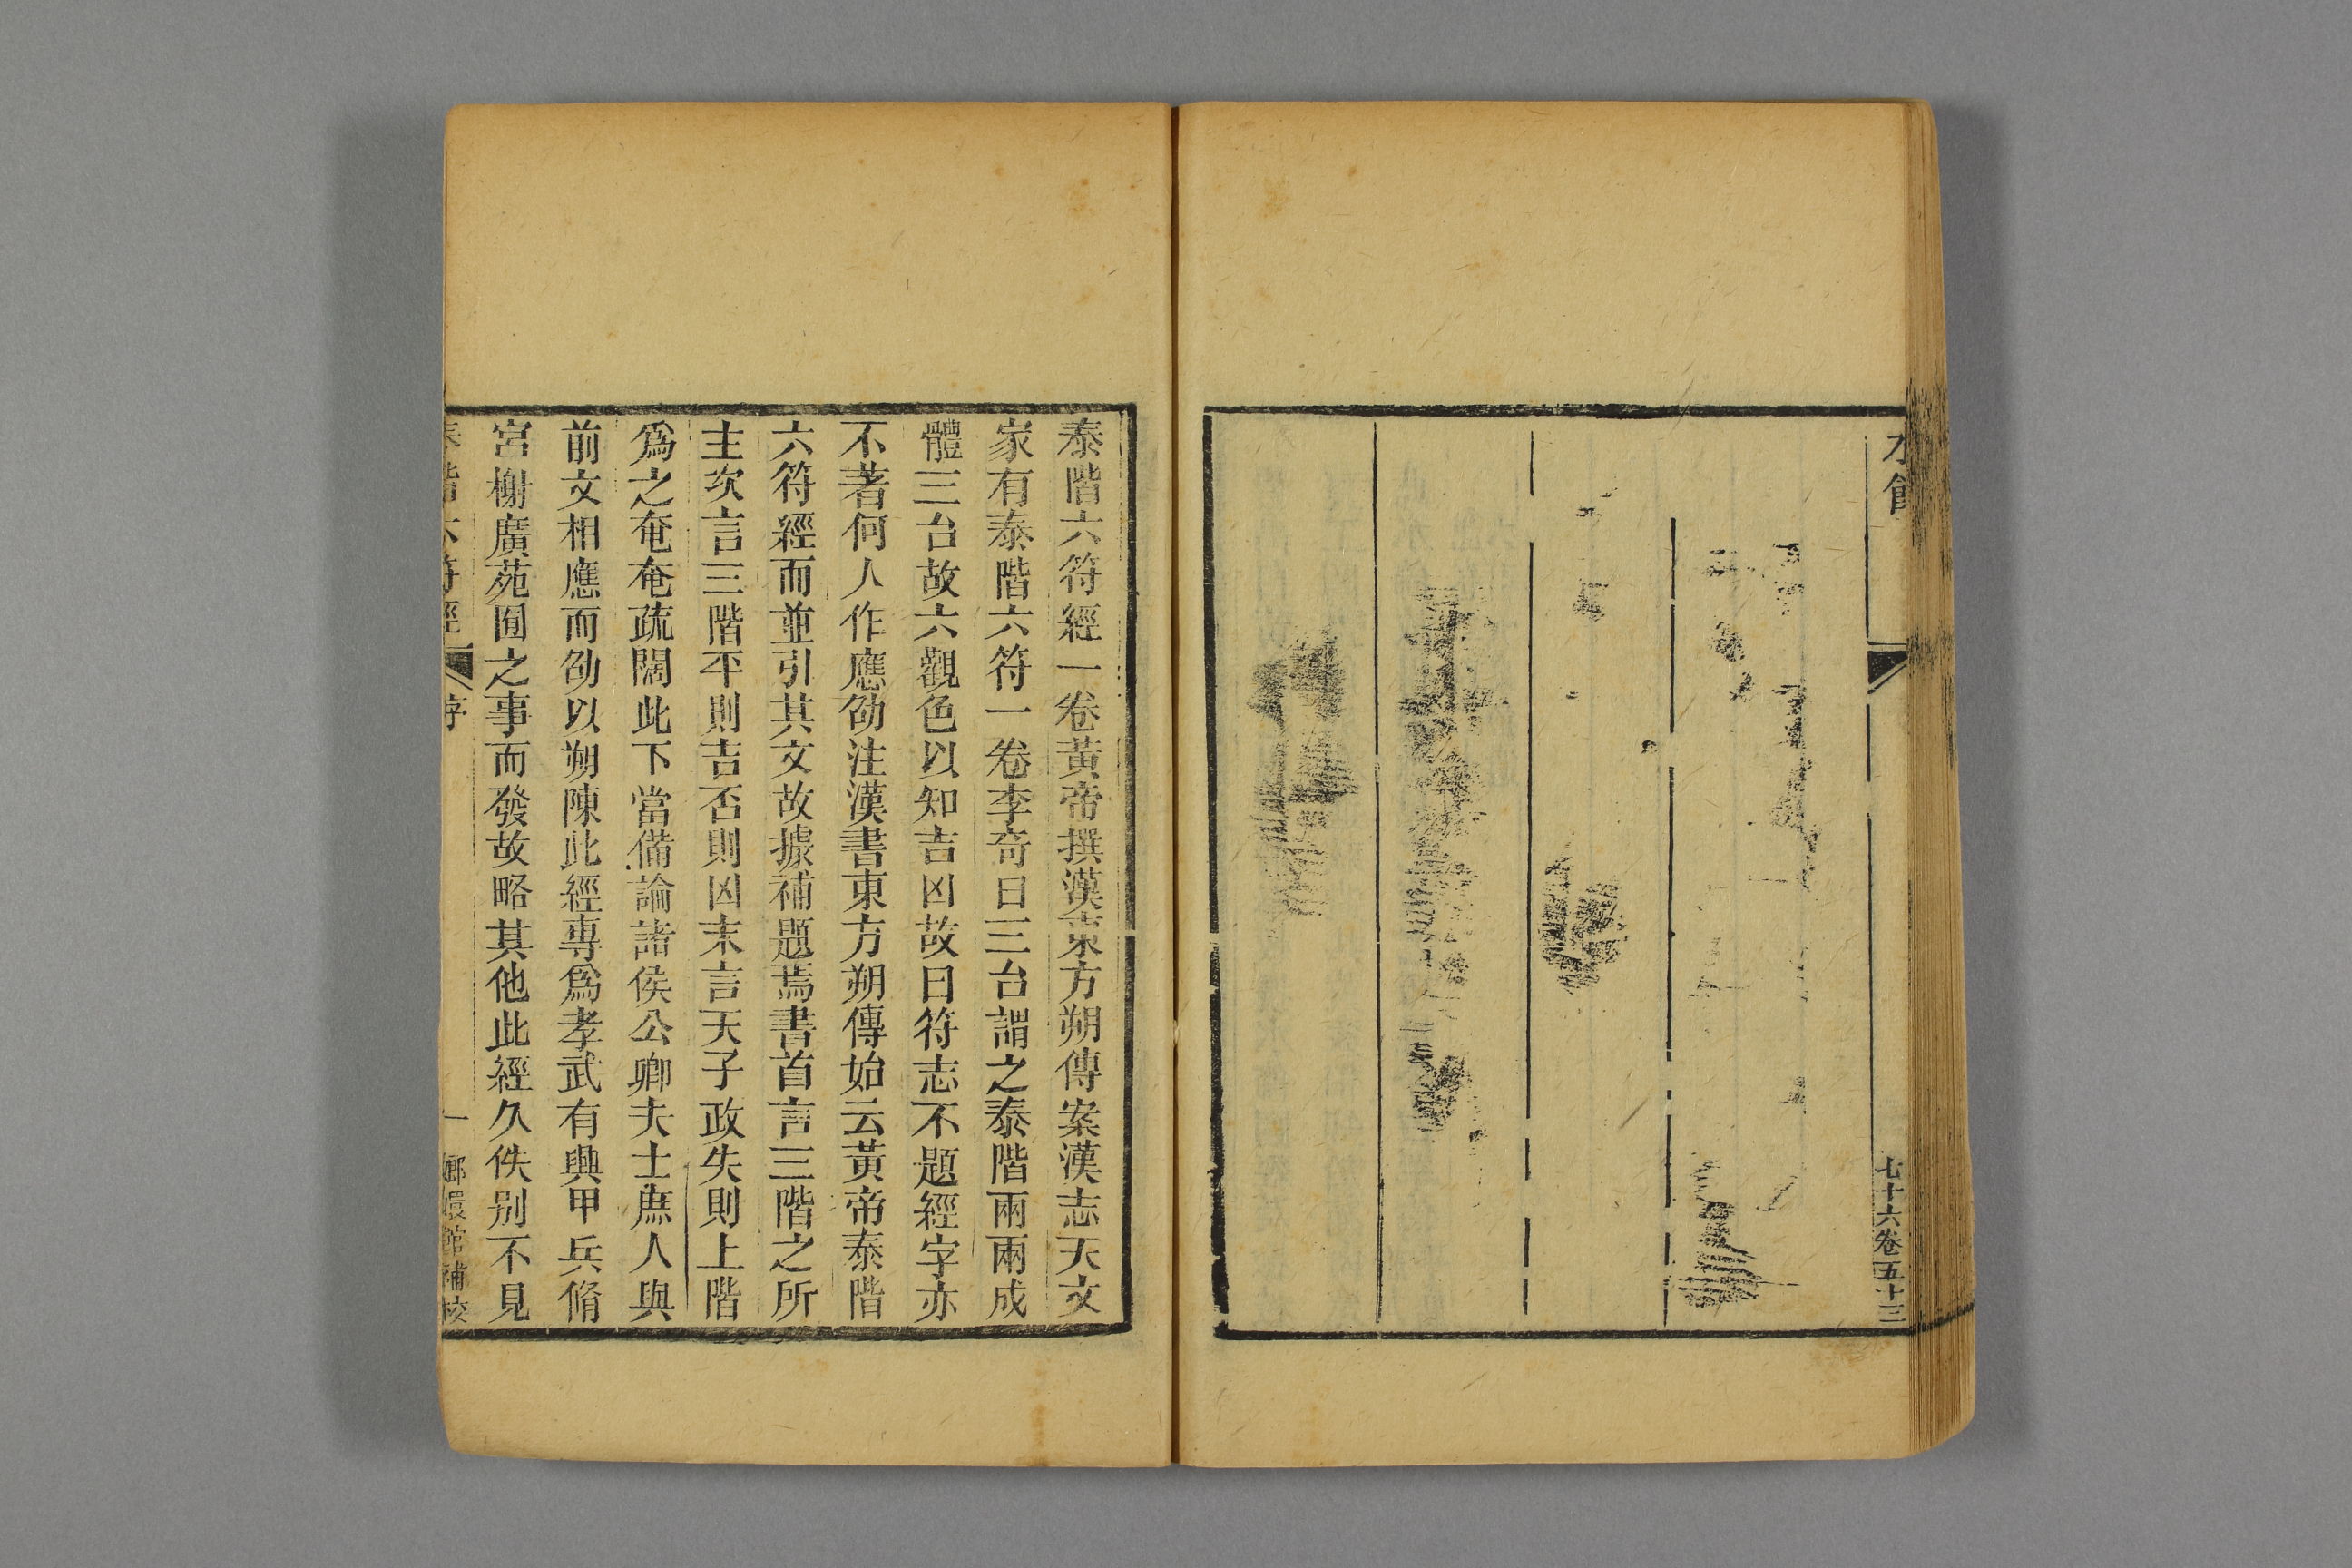 水飾
七十六卷五十三
泰階六符經一卷黃帝撰漢東方朔傳案漢志天文
家有泰階六符一卷李奇曰三台謂之泰階兩兩成
體三台故六觀色以知吉凶故曰符志不題經字亦
不著何人作應劭注漢書東方朔傳始云黃帝泰階
六符經而並引其文故據補題焉書首言三階之所
主次言三階平則吉否則凶末言天子政失則上階
爲之奄奄疏闊此下當備論諸侯公卿大夫士庶人與
前文相應而劭以朔陳此經專爲孝武有興甲兵脩
宮榭廣苑囿之事而發故略其他此經久佚别不見
泰階六符經 序
一 嫏嬛館補校